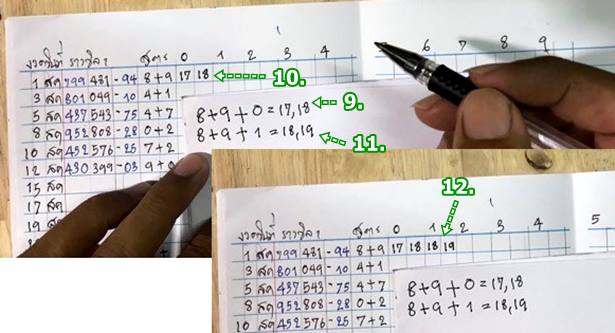 งวดวันที่ รางวัลฯ สูตร 0 1 2 3 4
6 7 8 9
1 สค 799 431 - 94 8+9 17 18 10.
3 สค 801 049 - 10 4+1
5 สค 437 543 - 75 4+7
8 สค 952 808 - 28 0+2
10 สค 452 576 - 25 7+2
12 สค 430 399 - 03 9+0
15 สค
17 สค
19 สค
8+9+0 = 17,18 9.
8+9+1 = 18,19 11.
12.
งวดวันที่ รางวัลฯ สูตร 0 1 2 3 4 5
1 สค 799 431 - 94 8+9 17 18 18 19
3 สค 801 049 - 10 4+1
5 สค 437 543 - 75 4+7
8 สค 952 808 - 28 0+2
10 สค 452 576 - 25 7+2
8+9+0 = 17,18
8+9+1 = 18,19